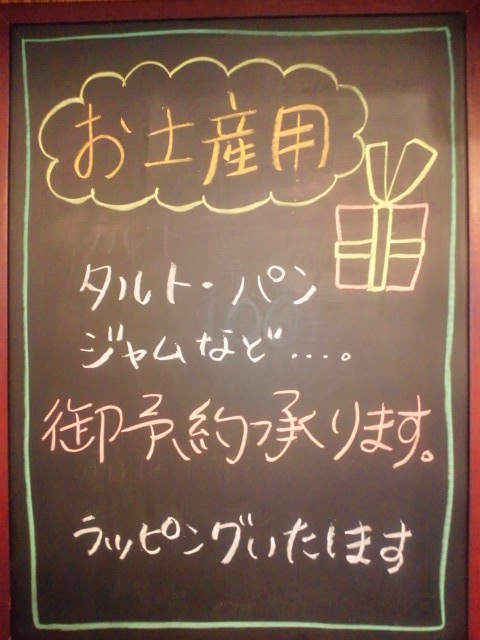 お土産用
タルト・パン
ジャムなど・・・。
御予約承ります。
ラッピングいたします